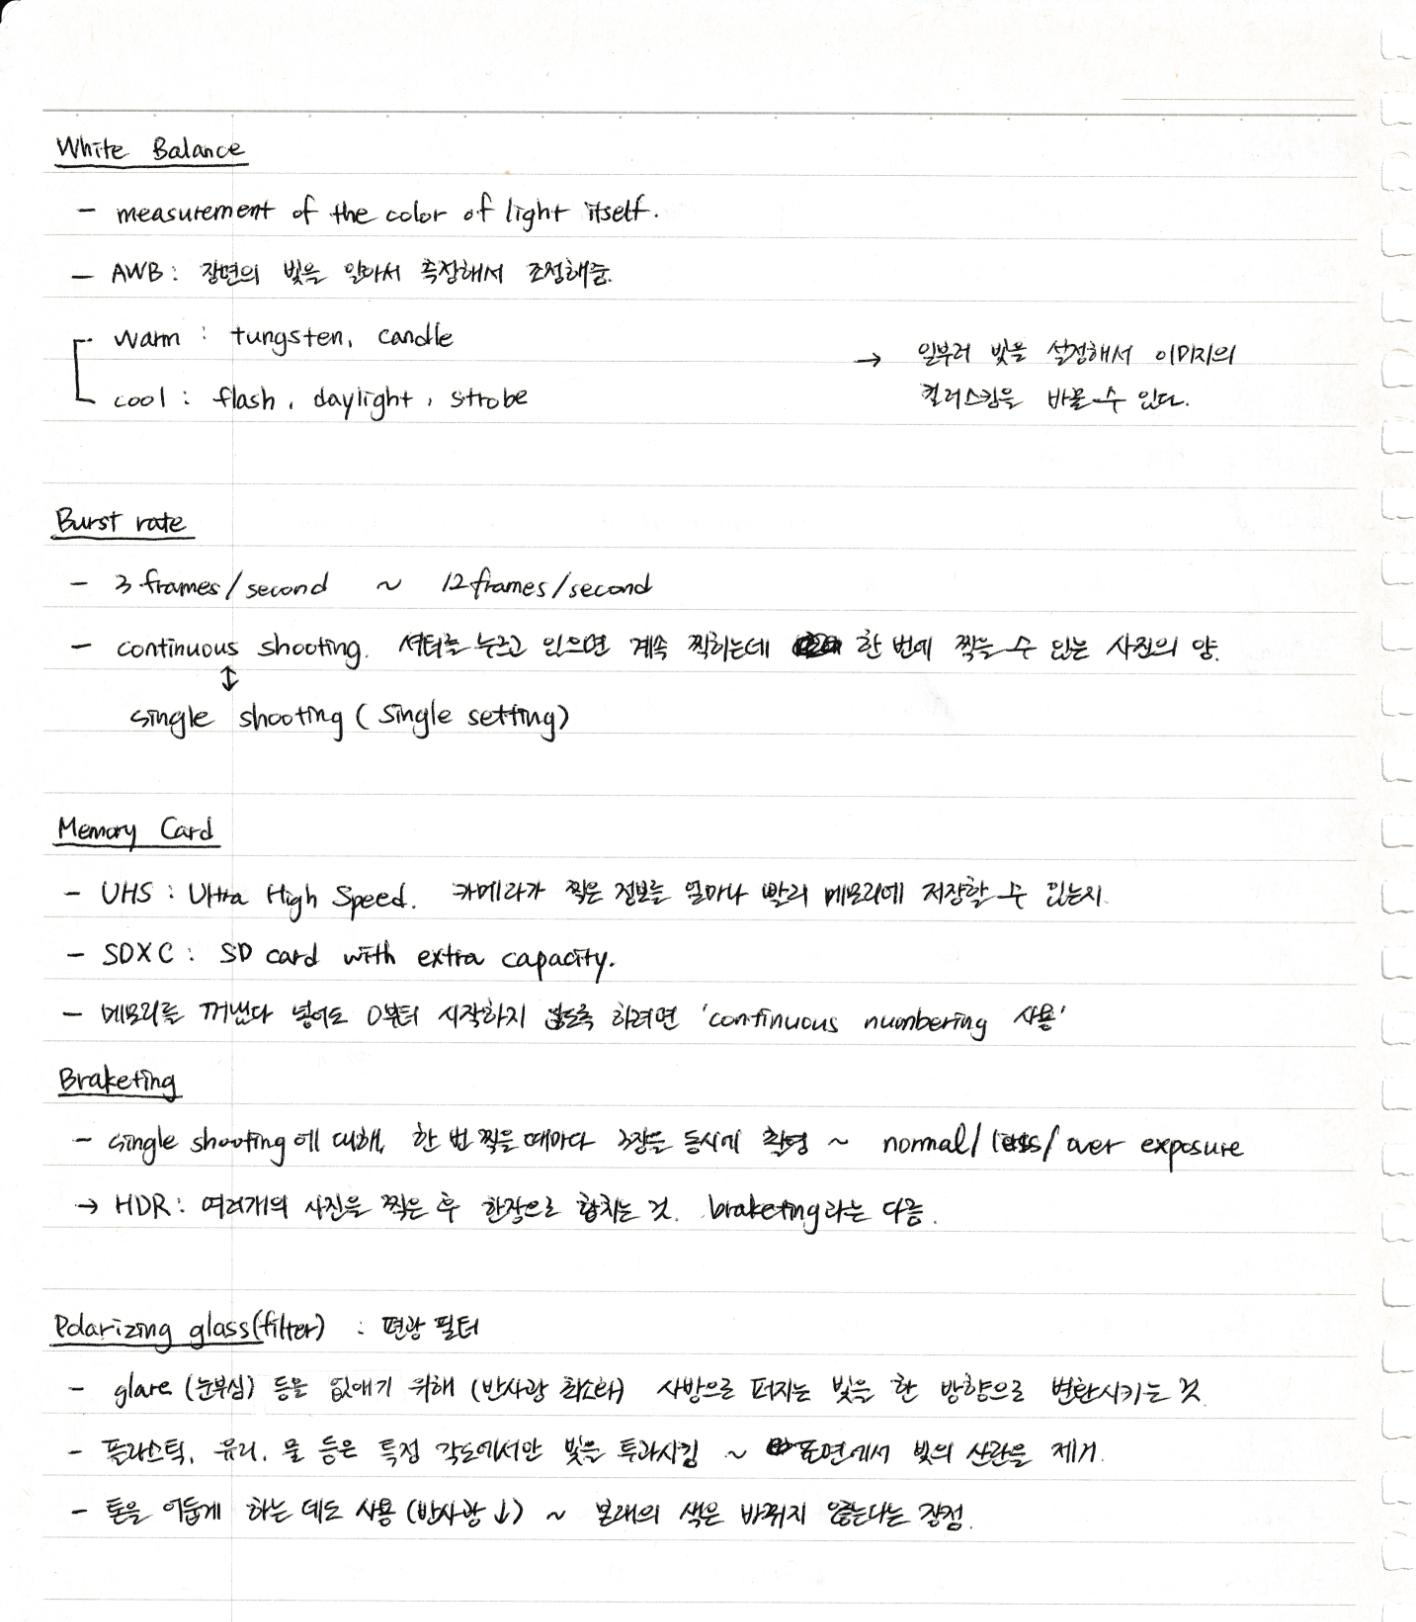 White Balance
- measurement of the color of light itself.
- AWB : 장면의 빛을 알아서 측정해서 조정해줌.
warm : tungsten, candle
cool : flash, daylight, strobe
→ 일부러 빛을 설정해서 이미지의
컬러스킴을 바꿀 수 있다.
Burst rate
- 3 frames/second ~ 12 frames/second
- continuous shooting. 셔터를 누르고 있으면 계속 찍히는데 한 번에 찍을 수 있는 사진의 양.
↕
single shooting (single setting)
Memory Card
- UHS : Ultra High Speed. 카메라가 찍은 정보를 얼마나 빨리 메모리에 저장할 수 있는지.
- SDXC : SD card with extra capacity.
- 메모리를 꺼냈다 넣어도 0부터 시작하지 않도록 하려면 'continuous numbering 사용'
Braketing
- single shooting에 대해, 한 번 찍을 때마다 3장을 동시에 촬영 ~ normal/less/over exposure
→ HDR : 여러개의 사진을 찍은 후 한장으로 합치는 것. braketing라는 다름.
Polarizing glass(filter) : 편광 필터
- glare (눈부심) 등을 없애기 위해 (반사광 최소화) 사방으로 퍼지는 빛을 한 방향으로 변환시키는 것.
- 플라스틱, 유리, 물 등은 특정 각도에서만 빛을 투과시킴 ~ 표면에서 빛의 산란을 제거.
- 톤을 어둡게 하는 데도 사용 (반사광↓) ~ 본래의 색은 바뀌지 않는다는 장점.